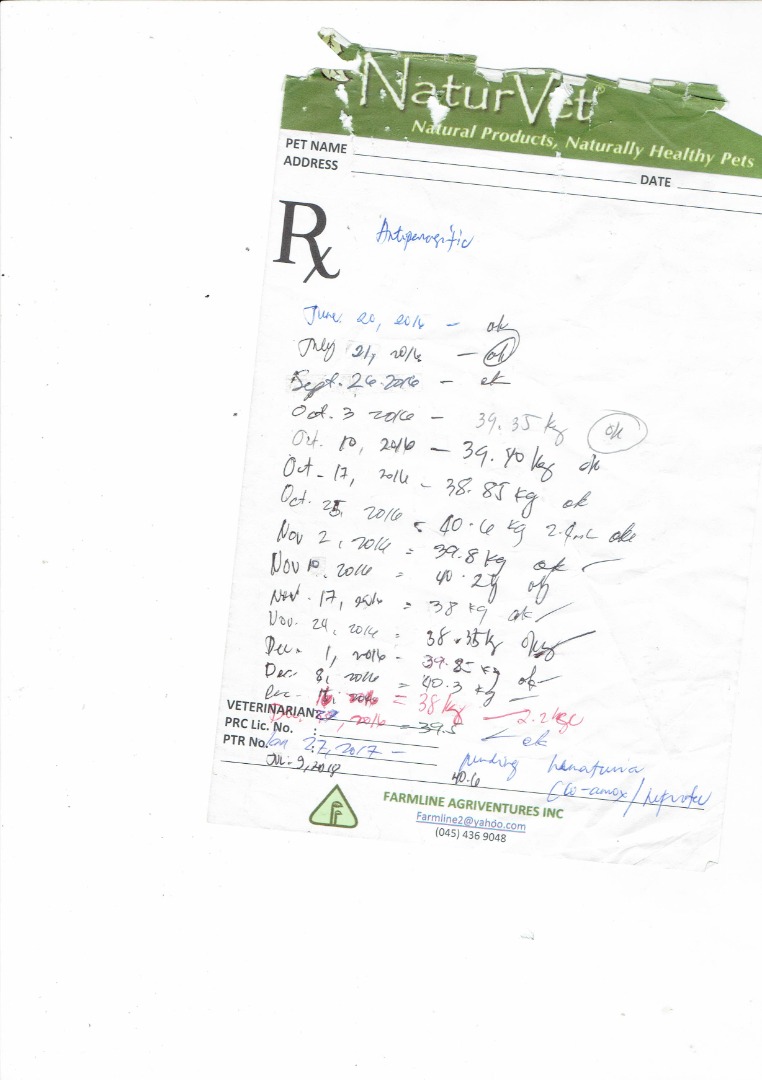 NaturVet
Natural Products, Naturally Healthy Pets
PET NAME
ADDRESS
DATE
Rx
Antiparasitic
June 20, 2016 - ok
July 21, 2016 - ok
Sept. 26 2016 - ok
Oct. 3 2016 - 39.35 kg ok
Oct. 10, 2016 - 39.40 kg ok
Oct - 17, 2016 - 38.85 kg ok
Oct. 25, 2016 = 40.6 kg
Nov 2, 2016 = 39.8 kg ok
Nov 10, 2016 = 40.2
Nov. 17, 2016 = 38 kg ok
Nov. 24, 2016 = 38.35 kg
Dec. 1, 2016 - 39.85 kg ok
Dec. 8, 2016 = 40.3 kg
2016 = 38 kg - 2.2
VETERINARIAN:
Dec. 2016 = 39.5 ok
PRC Lic. No. :
PTR No. :
Jan 27, 2017 - pending
40.6 Co-amox/
FARMLINE AGRIVENTURES INC
Farmline2@yahoo.com
(045) 436 9048